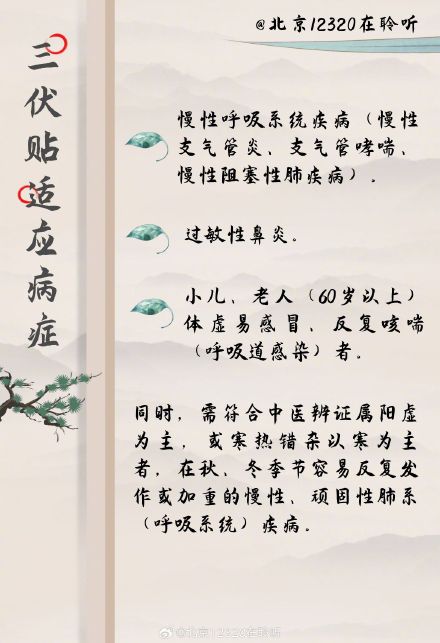 @北京12320在聆听
三伏贴适应病症
慢性呼吸系统疾病（慢性
支气管炎、支气管哮喘、
慢性阻塞性肺疾病）。
过敏性鼻炎。
小儿、老人（60岁以上）
体虚易感冒、反复咳喘
（呼吸道感染）者。
同时，需符合中医辨证属阳虚
为主，或寒热错杂以寒为主
者，在秋、冬季节容易反复发
作或加重的慢性、顽固性肺系
（呼吸系统）疾病。
@北京12320在聆听